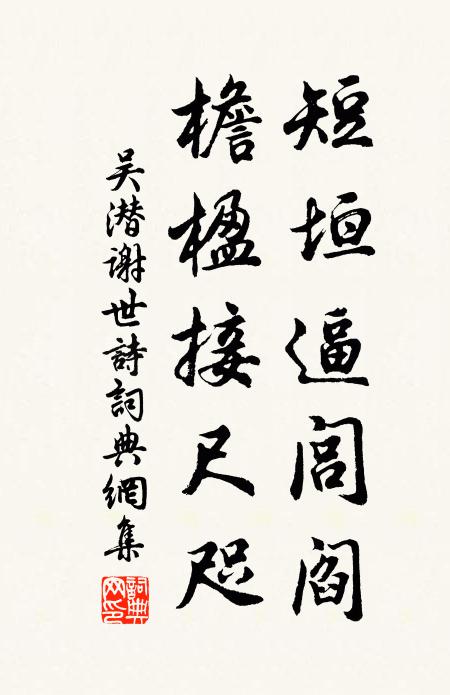 短垣逼閭閻
檐楹接尺咫
吴潛谢世詩詞典網集
詞典网印